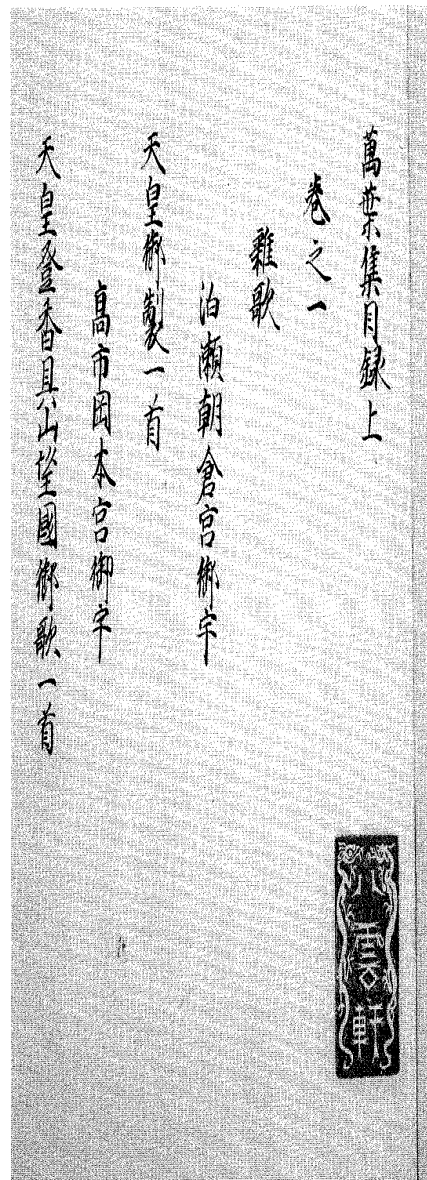 萬葉集目録上
巻之一
雜歌
泊瀬朝倉宮御宇
天皇御製一首
高市岡本宮御宇
天皇登香具山望國御歌一首
八雲軒